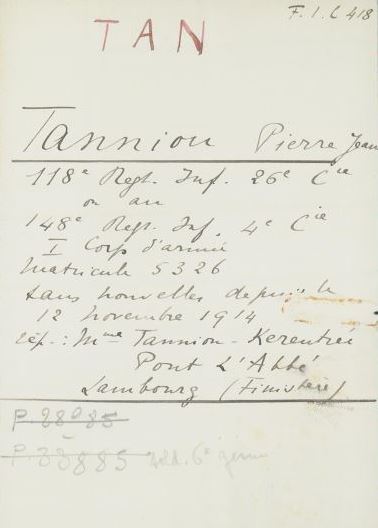 F. I. C 418
TAN
Tannion Pierre Jean
118e Regt. Inf. 26e Cie
ou au
148e Regt. Inf. 4e Cie
I Corps d'armée
Matricule 5326
sans nouvelles depuis le
12 novembre 1914
rép.: Mme Tannion - Kerentree
Pont L'Abbé
Lambourg (Finistère)
P.
P. 33885